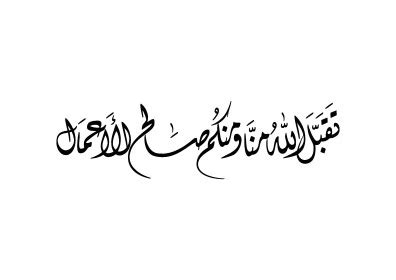 تَقَبَّلَ اللهُ مِنَّا وَمِنْكُم صَالِح الأَعْمَال